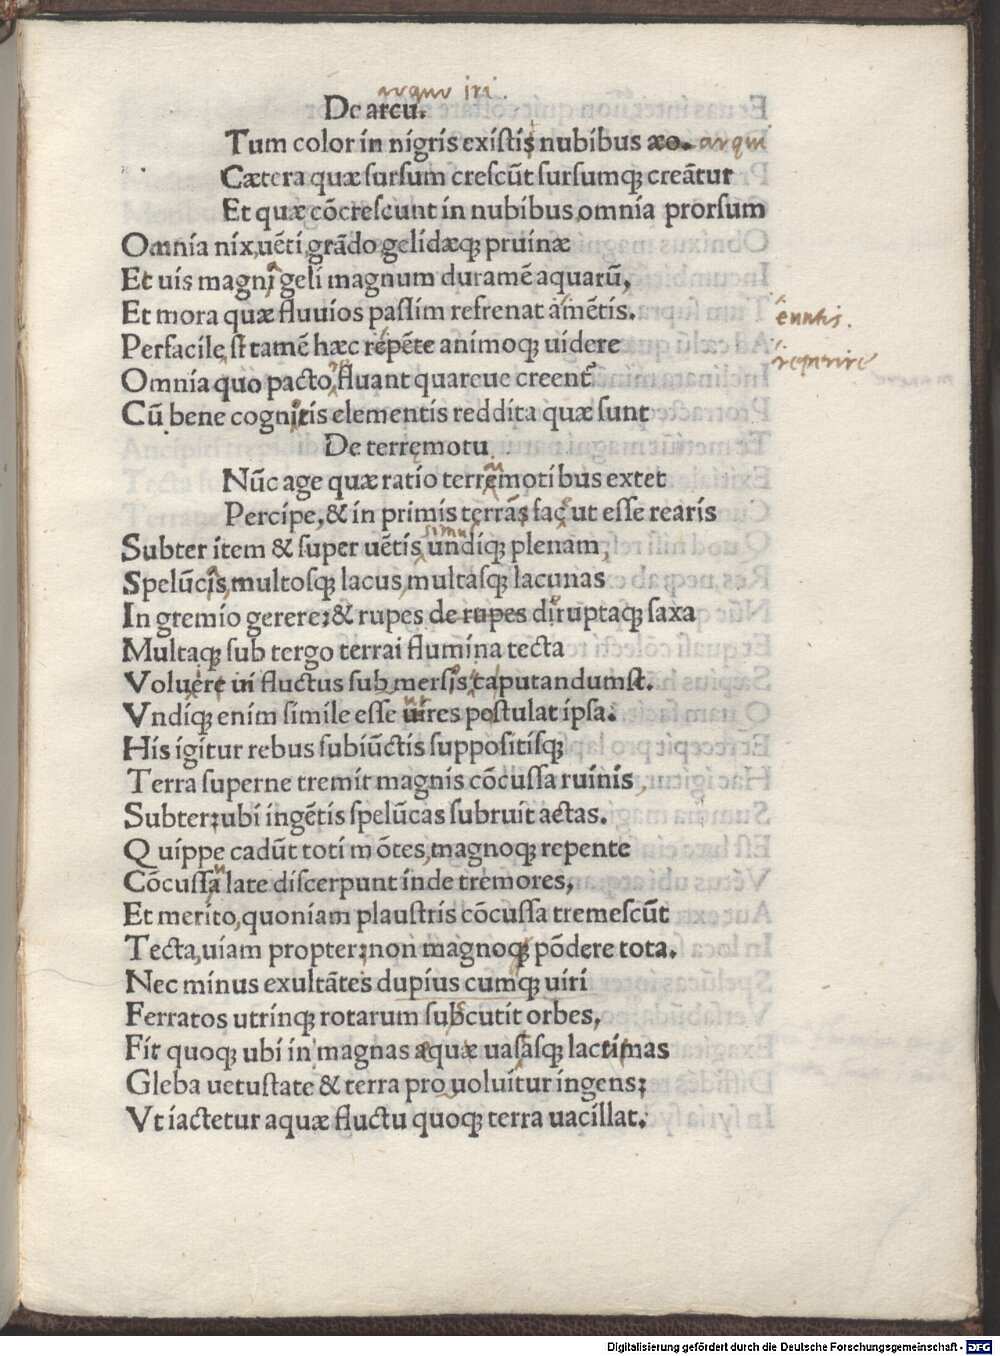 arquu iri.
De arcu.
Tum color in nigris existis nubibus æo. arqui
Cætera quæ sursum crescūt sursumq; creātur
Et quæ cōcrescunt in nubibus omnia prorsum
Omnia nix, uēti, grādo gelidæq; pruinæ
Et uis magni geli magnum duramē aquarū,
Et mora quæ fluuios passim refrenat amētis. euntis.
Perfacile, st tamē hæc repēte animoq; uidere reperire
Omnia quo pacto, fluant quareue creent
Cū bene cognitis elementis reddita quæ sunt
De terremotu
Nūc age quæ ratio terremotibus extet
Percipe, & in primis terrās fac ut esse rearis
simul
Subter item & super uētis undiq; plenam,
Spelūcis, multosq; lacus, multasq; lacunas
In gremio gerere; & rupes de rupes diruptaq; saxa
Multaq; sub tergo terrai flumina tecta
Voluere in fluctus sub mersis caputandumst.
Vndiq; enim simile esse uires postulat ipsa.
His igitur rebus subiūctis suppositisq;
Terra superne tremit magnis cōcussa ruinis,
Subter; ubi ingētis spelūcas subruit aetas.
Quippe cadūt toti mōtes, magnoq; repente
Cōcussa late discerpunt inde tremores,
Et merito, quoniam plaustris cōcussa tremescūt
Tecta, uiam propter; non magnoq; pōdere tota.
Nec minus exultātes dupius cumq; uiri
Ferratos utrinq; rotarum subcutit orbes,
Fit quoq; ubi in magnas aquæ uasasq; lactimas
Gleba uetustate & terra pro uoluitur ingens;
Vt iactetur aquæ fluctu quoq; terra uacillat.
Digitalisierung gefördert durch die Deutsche Forschungsgemeinschaft - DFG